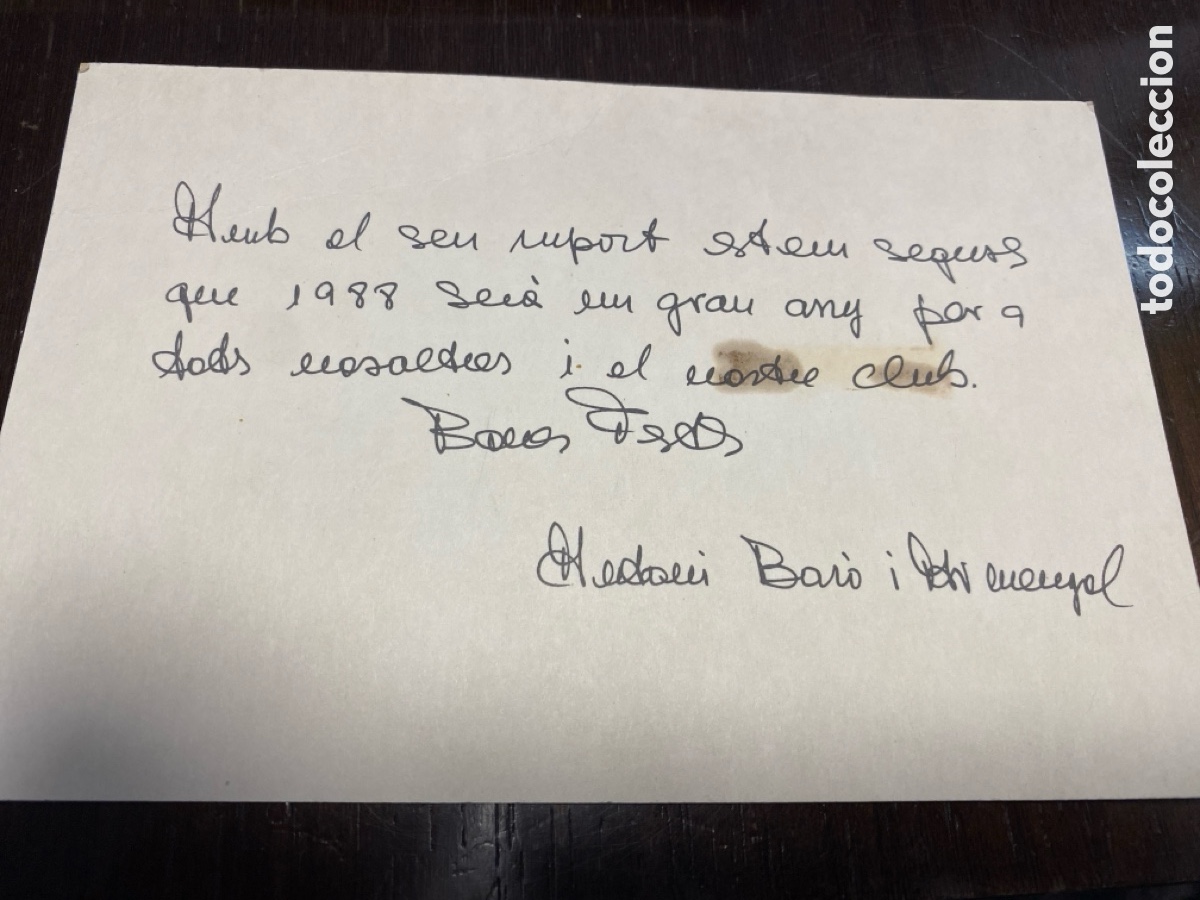 Amb el seu suport estem segurs
que 1988 serà un gran any per a
tots nosaltres i el nostre club.
Bones Festes
Antoni Baró i Armengol
todocoleccion